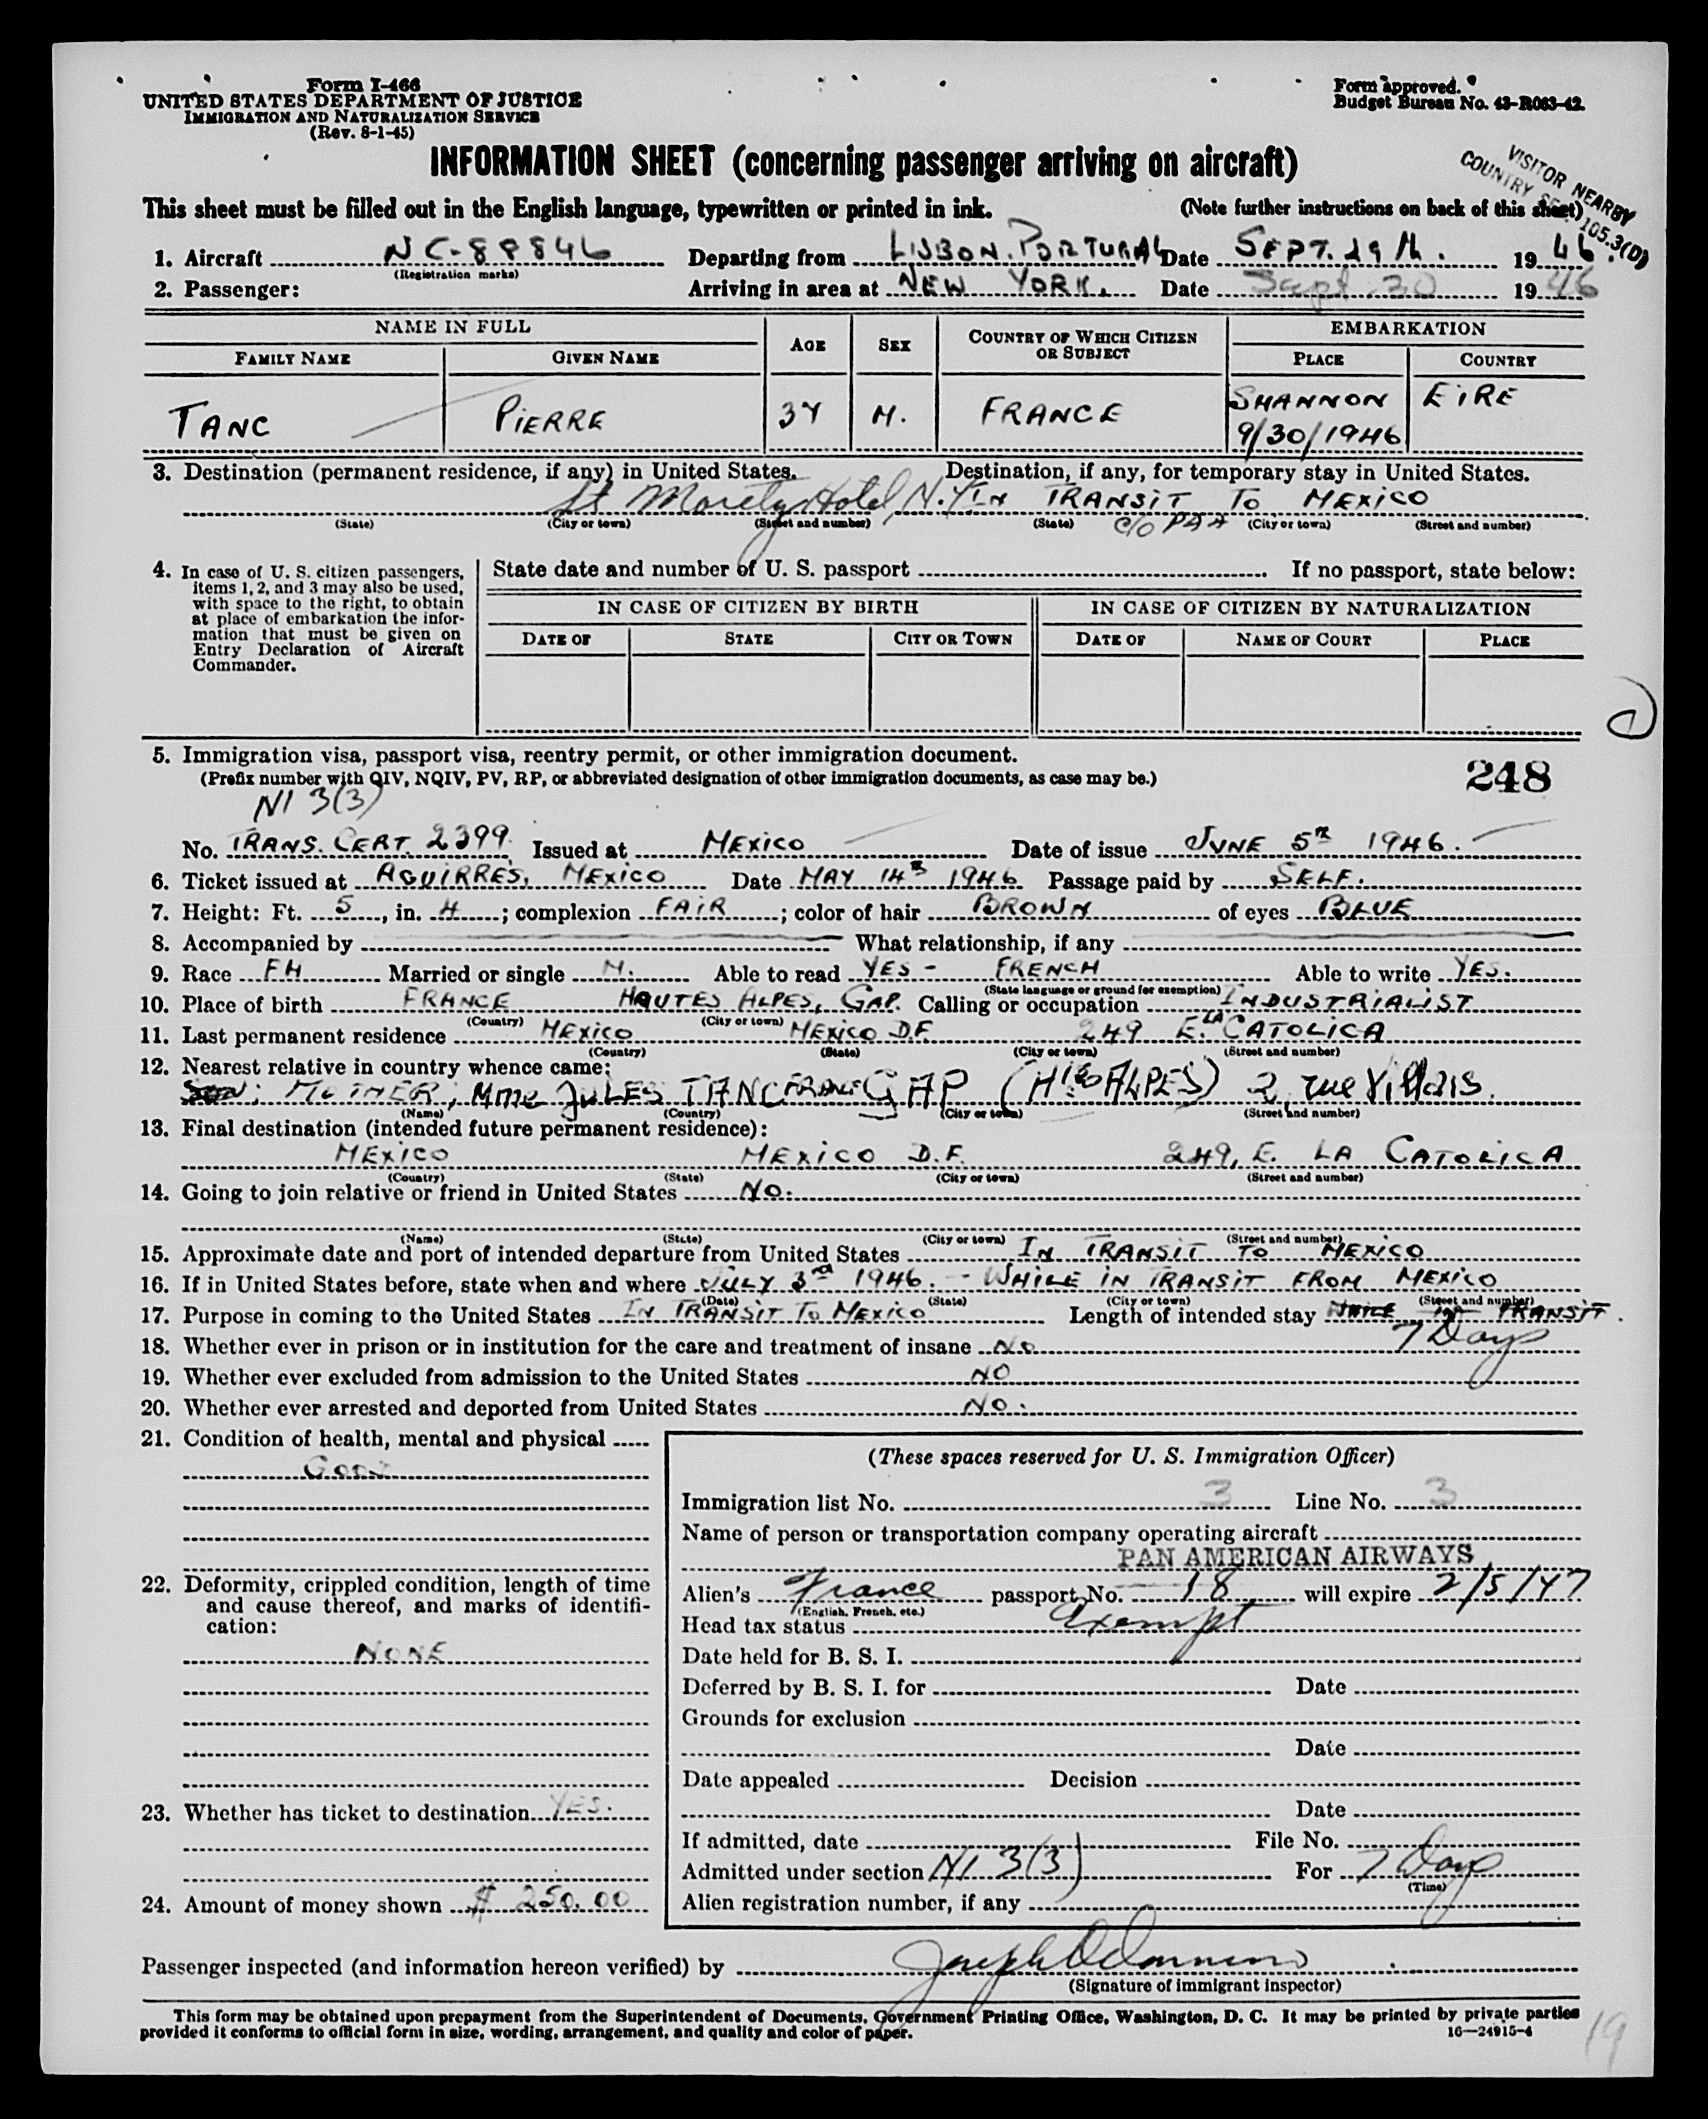 Form I-466
UNITED STATES DEPARTMENT OF JUSTICE
IMMIGRATION AND NATURALIZATION SERVICE
(Rev. 8-1-45)
Form approved.
Budget Bureau No. 43-R063-42.
INFORMATION SHEET (concerning passenger arriving on aircraft)
VISITOR NEARBY
COUNTRY SEC. 105.3(D)
This sheet must be filled out in the English language, typewritten or printed in ink. (Note further instructions on back of this sheet)
1. Aircraft NC-88846 Departing from LISBON. PORTUGAL Date SEPT. 29th. 1946.
(Registration marks)
2. Passenger: Arriving in area at NEW YORK. Date Sept 30 1946
NAME IN FULL AGE SEX COUNTRY OF WHICH CITIZEN OR SUBJECT EMBARKATION
FAMILY NAME GIVEN NAME PLACE COUNTRY
TANC PIERRE 34 M. FRANCE SHANNON EIRE
9/30/1946
3. Destination (permanent residence, if any) in United States. Destination, if any, for temporary stay in United States.
St Moretz Hotel, N.Y. IN TRANSIT TO MEXICO
(State) (City or town) (Street and number) (State) c/o PAA (City or town) (Street and number)
4. In case of U. S. citizen passengers, items 1, 2, and 3 may also be used, with space to the right, to obtain at place of embarkation the information that must be given on Entry Declaration of Aircraft Commander.
State date and number of U. S. passport If no passport, state below:
IN CASE OF CITIZEN BY BIRTH IN CASE OF CITIZEN BY NATURALIZATION
DATE OF STATE CITY OR TOWN DATE OF NAME OF COURT PLACE
5. Immigration visa, passport visa, reentry permit, or other immigration document.
(Prefix number with QIV, NQIV, PV, RP, or abbreviated designation of other immigration documents, as case may be.)
248
NI 3(3)
No. TRANS. CERT. 2399 Issued at MEXICO Date of issue JUNE 5th 1946.
6. Ticket issued at AGUIRRES, MEXICO Date MAY 14th 1946 Passage paid by SELF.
7. Height: Ft. 5, in. 4; complexion FAIR; color of hair BROWN of eyes BLUE
8. Accompanied by What relationship, if any
9. Race FH Married or single M. Able to read YES - FRENCH Able to write YES.
(State language or ground for exemption)
10. Place of birth FRANCE HAUTES ALPES, GAP. Calling or occupation INDUSTRIALIST
(Country) (City or town)
11. Last permanent residence MEXICO MEXICO D.F. 249 E. LA CATOLICA
(Country) (State) (City or town) (Street and number)
12. Nearest relative in country whence came:
MOTHER, Mme JULES TANC FRANCE GAP (Htes ALPES) 2, rue Villars.
(Name) (Country) (City or town) (Street and number)
13. Final destination (intended future permanent residence):
MEXICO MEXICO D.F. 249, E. LA CATOLICA
(Country) (State) (City or town) (Street and number)
14. Going to join relative or friend in United States NO.
(Name) (State) (City or town) (Street and number)
15. Approximate date and port of intended departure from United States IN TRANSIT TO MEXICO
16. If in United States before, state when and where JULY 3rd 1946. - WHILE IN TRANSIT FROM MEXICO
(Date) (State) (City or town) (Street and number)
17. Purpose in coming to the United States IN TRANSIT TO MEXICO Length of intended stay WHILE IN TRANSIT.
7 Days
18. Whether ever in prison or in institution for the care and treatment of insane NO
19. Whether ever excluded from admission to the United States NO
20. Whether ever arrested and deported from United States NO.
21. Condition of health, mental and physical
GOOD
22. Deformity, crippled condition, length of time and cause thereof, and marks of identification:
NONE
23. Whether has ticket to destination YES.
24. Amount of money shown $ 250.00
(These spaces reserved for U. S. Immigration Officer)
Immigration list No. 3 Line No. 3
Name of person or transportation company operating aircraft
PAN AMERICAN AIRWAYS
Alien's France passport No. 18 will expire 2/5/47
(English, French, etc.)
Head tax status Exempt
Date held for B. S. I.
Deferred by B. S. I. for Date
Grounds for exclusion
Date
Date appealed Decision
Date
If admitted, date File No.
Admitted under section NI 3(3) For 7 Days
(Time)
Alien registration number, if any
Passenger inspected (and information hereon verified) by
(Signature of immigrant inspector)
This form may be obtained upon prepayment from the Superintendent of Documents, Government Printing Office, Washington, D. C. It may be printed by private parties
provided it conforms to official form in size, wording, arrangement, and quality and color of paper. 16—24915-4
19